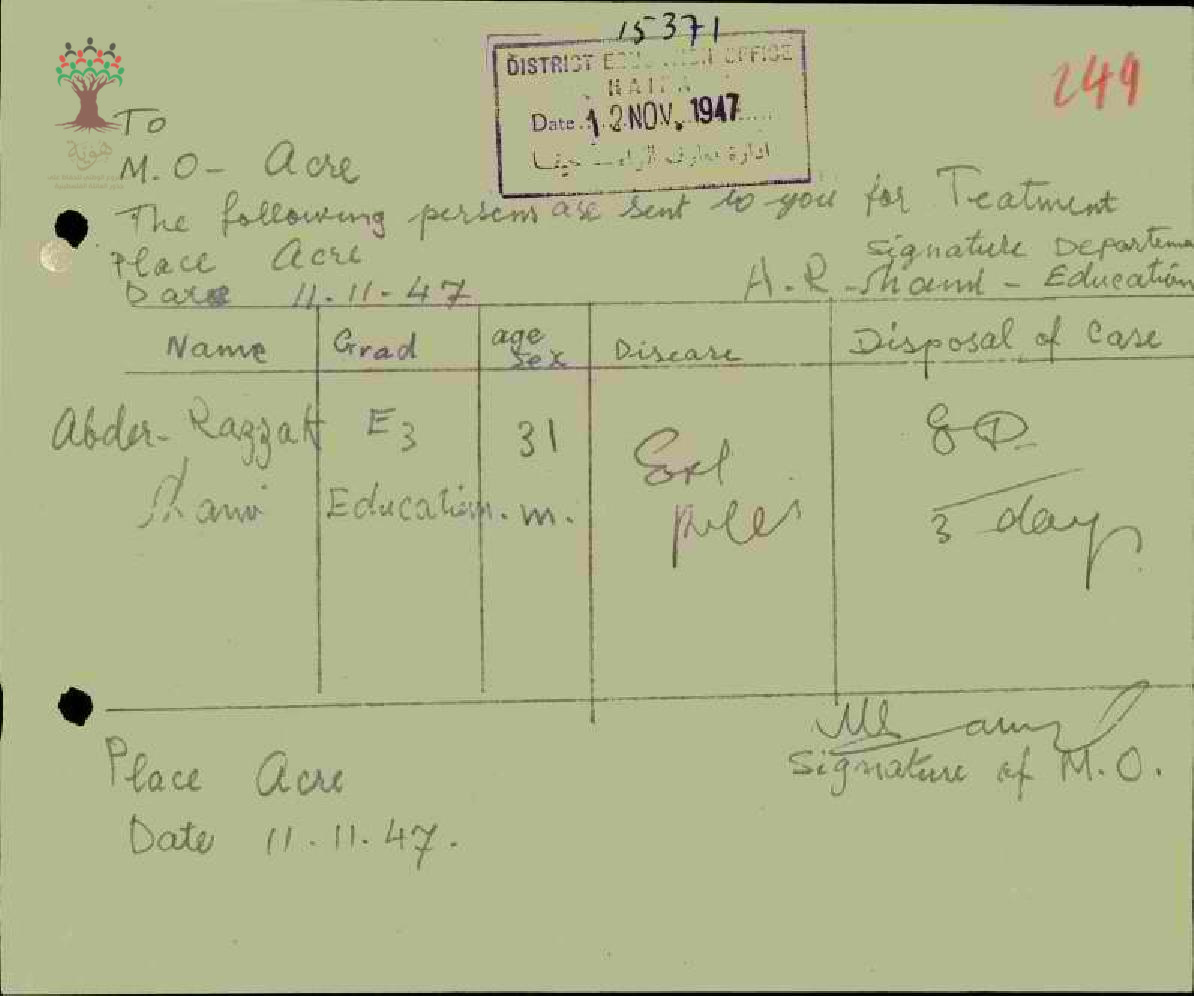 15371
DISTRICT EDUCATION OFFICE
HAIFA
Date 12 NOV. 1947
ادارة معارف لواء حيفا
249
هوية
To
M.O - Acre
The following persons are sent to you for Teatment
Place Acre
Signature Departeme
Date 11-11-47
A.R - Shami - Education
Name Grad age Sex Disease Disposal of Case
Abder-Razzak E3 31 Ext
Shami Education. m. piles
3 days
Signature of M.O.
Place Acre
Date 11.11.47.